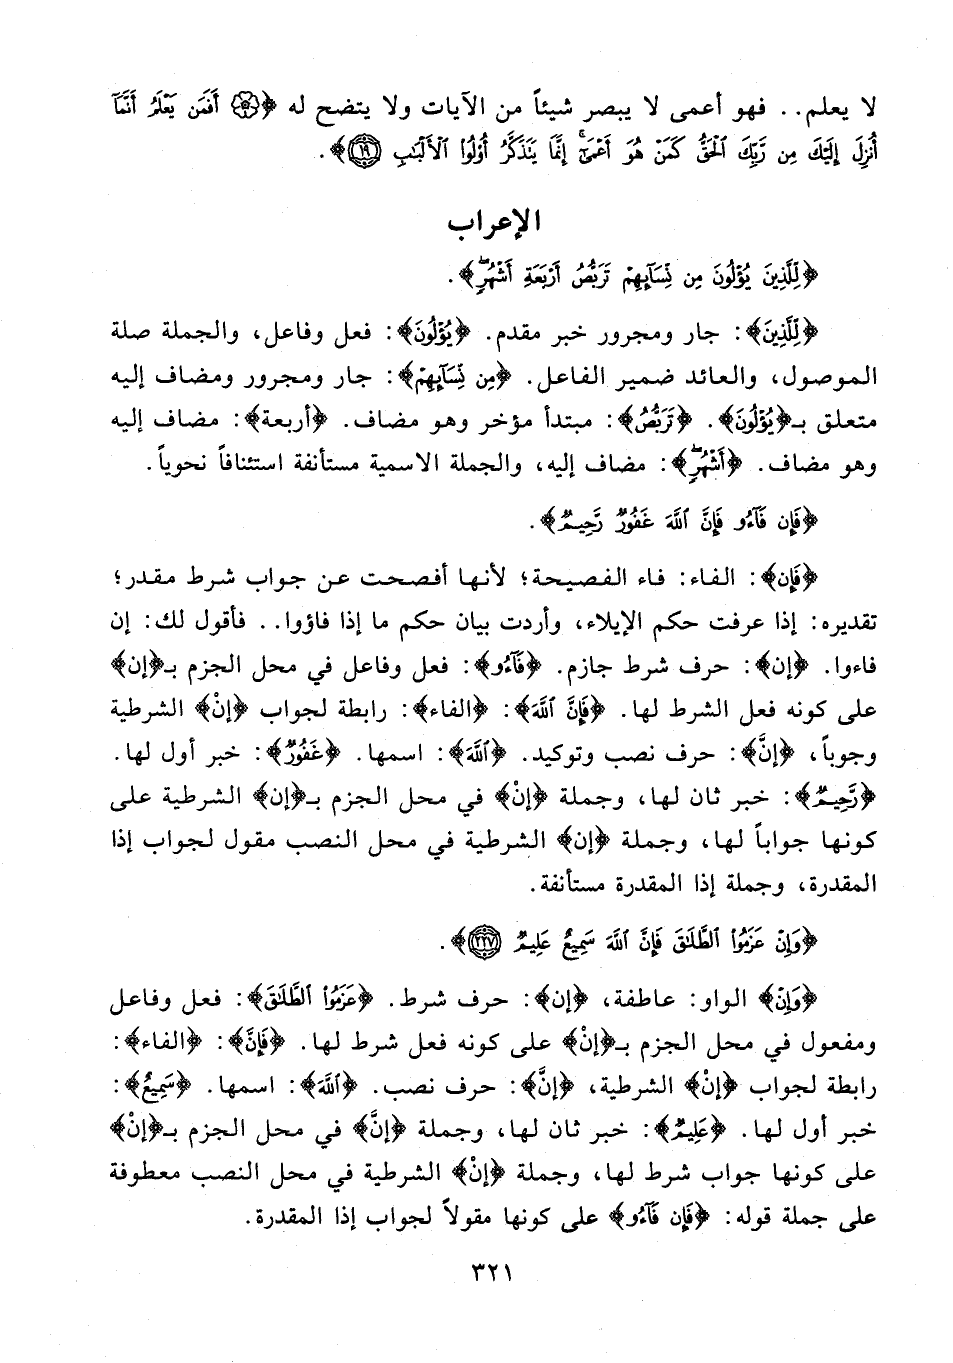 لا يعلم.. فهو أعمى لا يبصر شيئاً من الآيات ولا يتضح له ﴿۞ أَفَمَن يَعْلَمُ أَنَّمَآ
أُنزِلَ إِلَيْكَ مِن رَّبِّكَ ٱلْحَقُّ كَمَنْ هُوَ أَعْمَىٰٓ ۚ إِنَّمَا يَتَذَكَّرُ أُو۟لُوا۟ ٱلْأَلْبَٰبِ ١٩﴾.
الإعراب
﴿لِّلَّذِينَ يُؤْلُونَ مِن نِّسَآئِهِمْ تَرَبُّصُ أَرْبَعَةِ أَشْهُرٍۖ﴾.
﴿لِّلَّذِينَ﴾: جار ومجرور خبر مقدم. ﴿يُؤْلُونَ﴾: فعل وفاعل، والجملة صلة
الموصول، والعائد ضمير الفاعل. ﴿مِن نِّسَآئِهِمْ﴾: جار ومجرور ومضاف إليه
متعلق بـ﴿يُؤْلُونَ﴾. ﴿تَرَبُّصُ﴾: مبتدأ مؤخر وهو مضاف. ﴿أربعة﴾: مضاف إليه
وهو مضاف. ﴿أَشْهُرٍۖ﴾: مضاف إليه، والجملة الاسمية مستأنفة استئنافاً نحوياً.
﴿فَإِن فَآءُو فَإِنَّ ٱللَّهَ غَفُورٌ رَّحِيمٌ﴾.
﴿فَإِن﴾: الفاء: فاء الفصيحة؛ لأنها أفصحت عن جواب شرط مقدر؛
تقديره: إذا عرفت حكم الإيلاء، وأردت بيان حكم ما إذا فاؤوا.. فأقول لك: إن
فاءوا. ﴿إن﴾: حرف شرط جازم. ﴿فَآءُو﴾: فعل وفاعل في محل الجزم بـ﴿إن﴾
على كونه فعل الشرط لها. ﴿فَإِنَّ ٱللَّهَ﴾: ﴿الفاء﴾: رابطة لجواب ﴿إنْ﴾ الشرطية
وجوباً، ﴿إنَّ﴾: حرف نصب وتوكيد. ﴿ٱللَّهَ﴾: اسمها. ﴿غَفُورٌ﴾: خبر أول لها.
﴿رَّحِيمٌ﴾: خبر ثان لها، وجملة ﴿إنْ﴾ في محل الجزم بـ﴿إن﴾ الشرطية على
كونها جواباً لها، وجملة ﴿إن﴾ الشرطية في محل النصب مقول لجواب إذا
المقدرة، وجملة إذا المقدرة مستأنفة.
﴿وَإِنْ عَزَمُوا۟ ٱلطَّلَٰقَ فَإِنَّ ٱللَّهَ سَمِيعٌ عَلِيمٌ ٢٢٧﴾.
﴿وَإِنْ﴾ الواو: عاطفة، ﴿إن﴾: حرف شرط. ﴿عَزَمُوا۟ ٱلطَّلَٰقَ﴾: فعل وفاعل
ومفعول في محل الجزم بـ﴿إنْ﴾ على كونه فعل شرط لها. ﴿فَإِنَّ﴾: ﴿الفاء﴾:
رابطة لجواب ﴿إنْ﴾ الشرطية، ﴿إنَّ﴾: حرف نصب. ﴿ٱللَّهَ﴾: اسمها. ﴿سَمِيعٌ﴾:
خبر أول لها. ﴿عَلِيمٌ﴾: خبر ثان لها، وجملة ﴿إنَّ﴾ في محل الجزم بـ﴿إنْ﴾
على كونها جواب شرط لها، وجملة ﴿إنْ﴾ الشرطية في محل النصب معطوفة
على جملة قوله: ﴿فَإِن فَآءُو﴾ على كونها مقولاً لجواب إذا المقدرة.
٣٢١